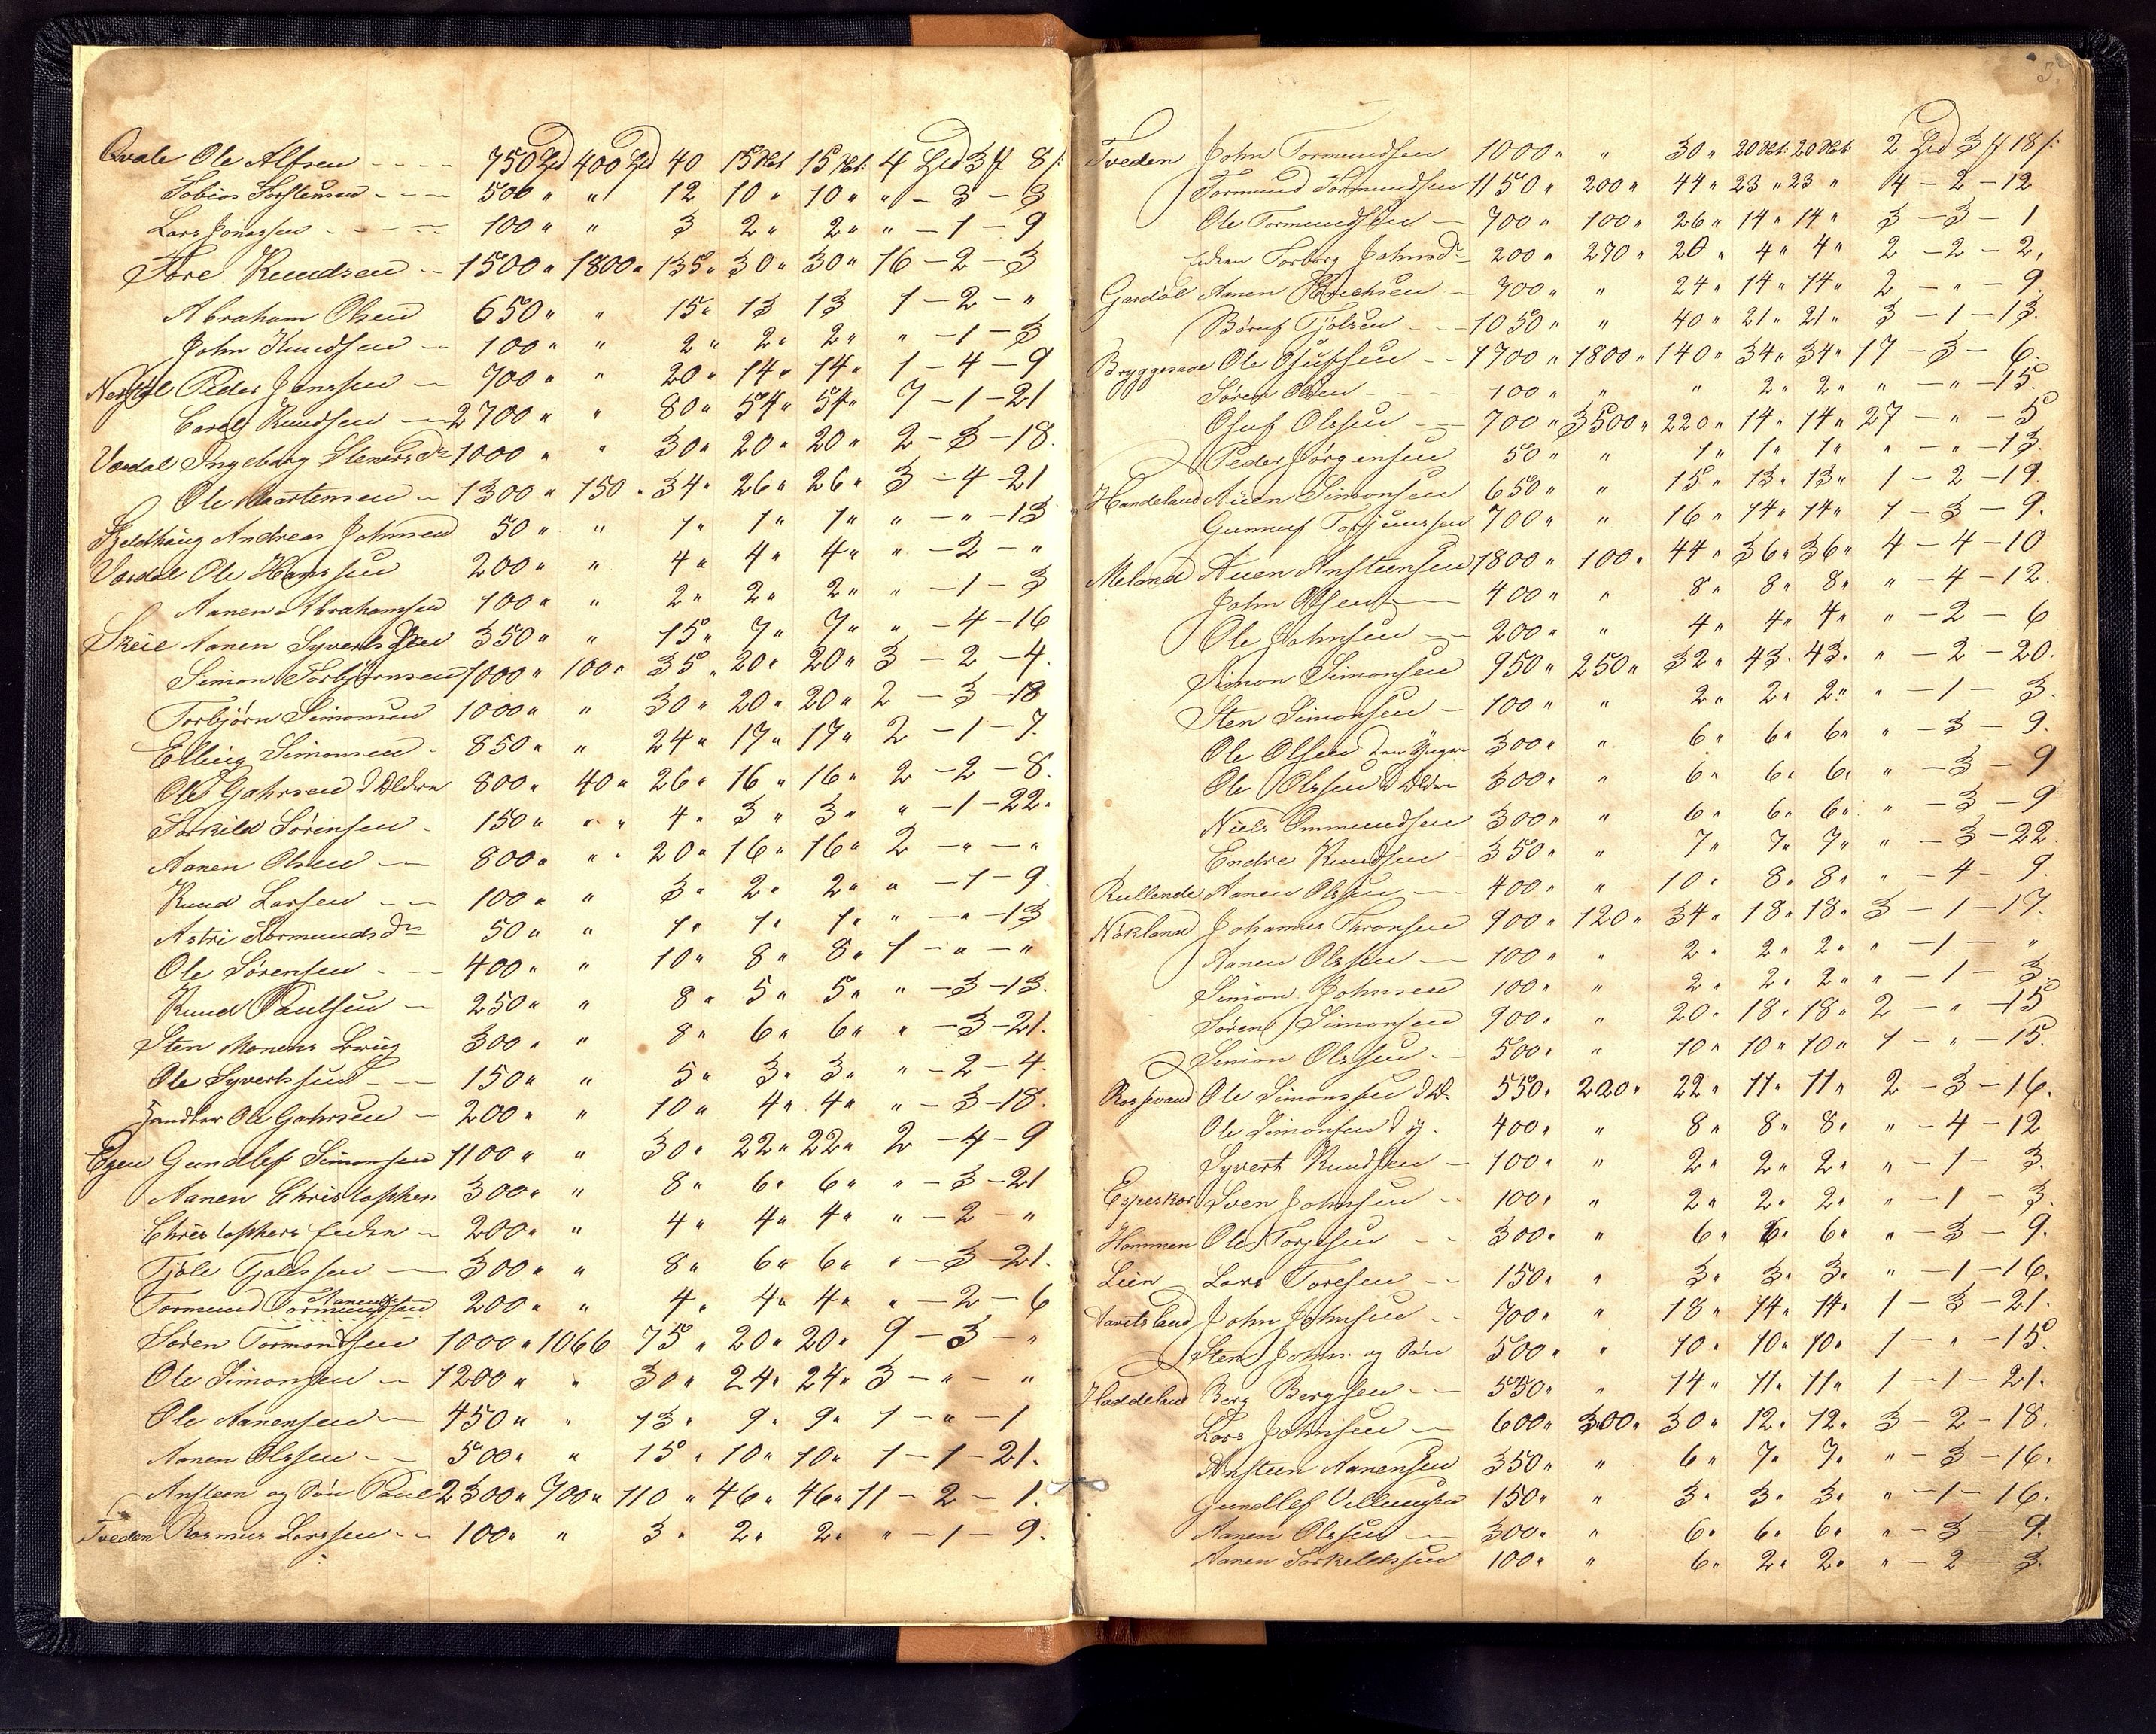 Qvale Ole Alfsen - - - - 750 Spd 400 Spd 40 15 Skl 15 Skl: 4 Spd 3 # 8 /:
Tobias Torstensen - - - 500 " " 12 10 " 10 " " - 3 - 3
Lars Jonassen - - - - 100 " " 3 2 " 2 " " - 1 - 9
Tore Knudsen - - 1500 " 1800 " 135 " 30 " 30 " 16 - 2 - 3
Abraham Olsen 650 " " 15 " 13 13 1 - 2 - "
John Knudsen - 100 " " 2 " 2 " 2 " " - 1 - 3
Peder Janssen - 700 " " 20 " 14 " 14 " 1 - 4 - 9
Carels Knudsen - 2700 " " 80 " 54 " 54 " 7 - 1 - 21
Vardal Ingeborg 1000 " " 30 " 20 " 20 " 2 - 3 - 18.
Ole Maartensen - 1300 " 150 " 34 " 26 " 26 " 3 - 4 - 21
Andreas Johnsen 50 " " 1 " 1 " 1 " " - " - 13
Vardal Ole Hanssen 200 " " 4 " 4 " 4 " " - 2 - "
Aanen Abrahamsen 100 " " 2 " 2 " 2 " " - 1 - 3
Skeie Aanen Syvertsen 350 " " 15 " 7 " 7 " " - 4 - 16
Simon Torbjørnsen 1000 " 100 " 35 " 20 " 20 " 3 - 2 - 4.
Torbjørn Simonsen 1000 " " 30 " 20 " 20 " 2 - 3 - 18
Elling Simonsen - 850 " " 24 " 17 " 17 " 2 - 1 - 7.
Ole Gahrsen d Eldre 800 " 40 " 26 " 16 " 16 " 2 - 2 - 8.
Torkild Sørensen - 150 " " " 4 " 3 " 3 " " - 1 - 22.
Aanen Olsen - 800 " " " 20 " 16 " 16 " 2 - " - "
Knud Larsen - - 100 " " 3 " 2 " 2 " " - 1 - 9
Astri Tormundsdr 50 " " 1 " 1 " 1 " " - " - 13
Ole Sørensen - - 400 " " 10 " 8 " 8 " 1 - " - "
Knud Paulsen - 250 " " 8 " 5 " 5 " " - 3 - 13.
Sten Monsens 300 " " 8 " 6 " 6 " " - 3 - 21.
Ole Syvertsen - - 150 " " 5 " 3 " 3 " " - 2 - 4.
Ole Gahrsen - 200 " " 10 " 4 " 4 " " - 3 - 18.
Egen Gundlef Simonsen 1100 " " 30 " 22 " 22 " 2 - 4 - 9
Aanen Christophers 300 " " 8 " 6 " 6 " " - 3 - 21
Christophers Enken - 200 " " 4 " 4 " 4 " " - 2 - "
Tjøle Tjølssen - 300 " " 8 " 6 " 6 " " - 3 - 21.
Tormund Tormundsen 200 " " 4 " 4 " 4 " " - 2 - 6
Søren Tormondsen 1000 " 1066 75 " 20 " 20 " 9 - 3 - "
Ole Simonsen - 1200 " " 30 " 24 " 24 " 3 - " - "
Ole Aanensen - 450 " " 13 " 9 " 9 " 1 - " - 1
Aanen Olssen - - 500 " " 15 " 10 " 10 " 1 - 1 - 21.
Ansteen og Søn Paul 2300 " 700 " 110 " 46 " 46 " 11 - 2 - 1.
Tveden Rasmus Larssen - - 100 " " 3 " 2 " 2 " " - 1 - 9.
3.
Tveden John Tormundsen 1000 " " 30 " 20 Skl: 20 Skl: 2 Spd 3 # 18 /:
Tormund Tormundsen 1150 " 200 " 44 " 23 " 23 " 4 - 2 - 12
Ole Tormundsen - 700 " 100 " 26 " 14 " 14 " 3 - 3 - 1
Enken Torborg Johnsdr 200 " 270 " 20 " 4 " 4 " 2 - 2 - 2.
Gardøl Aanen Erichsen - 700 " " 24 " 14 " 14 " 2 - " - 9.
Børuf Tjølsen - - 1050 " " 40 " 21 " 21 " 3 - 1 - 13.
Bryggesaae Ole Osufsen - - 1700 " 1800 " 140 " 34 " 34 " 17 - 3 - 6.
Søren Olsen - - - 100 " " " 2 " 2 " " - " - 15.
Osuf Olssen - - 700 " 3500 " 220 " 14 " 14 " 27 - " - 5
Peder Jørgensen 50 " " 1 " 1 " 1 " " - " - 13.
Handeland Auen Simonsen 650 " " 15 " 13 " 13 " 1 - 2 - 19.
Gunnuf Torjussen 700 " " 16 " 14 " 14 " 1 - 3 - 9.
Meland Auen Ansteensen 1800 " 100 " 44 " 36 " 36 " 4 - 4 - 10
John Olsen - 400 " " 8 " 8 " 8 " " - 4 - 12.
Ole Johnsen - 200 " " 4 " 4 " 4 " " - 2 - 6
Simon Simonsen 950 " 250 " 32 " 43 " 43 " " - 2 - 20.
Sten Simonsen - 100 " " 2 " 2 " 2 " " - 1 - 3.
Ole Olsen den Yngre 300 " " 6 " 6 " 6 " " - 3 - 9.
Ole Olssen d Eldre 300 " " 6 " 6 " 6 " " - 3 - 9
Niels Ommundsen 300 " " 6 " 6 " 6 " " - 3 - 9
Endre Knudsen 350 " " 7 " 7 " 7 " " - 3 - 22.
Rullende Aanen Olssen - 400 " " 10 " 8 " 8 " " - 4 - 9.
Nøkland Johannes Thronsen 900 " 120 " 34 " 18 " 18 " 3 - 1 - 17.
Aanen Olssen - 100 " " 2 " 2 " 2 " " - 1 - "
Simon Johnsen 100 " " 2 " 2 " 2 " " - 1 - 3.
Søren Simonsen 900 " " 20 " 18 " 18 " 2 - " - 15
Simon Olssen - - 500 " " 10 " 10 " 10 " 1 - " - 15.
Rossevand Ole Simonssen d E. 550 " 220 " 22 " 11 " 11 " 2 - 3 - 16.
Ole Simonsen d y. 400 " " 8 " 8 " 8 " " - 4 - 12
Syvert Knudsen - 100 " " 2 " 2 " 2 " " - 1 - 3.
Espeskor Sven Johnsen - - 100 " " 2 " 2 " 2 " " - 1 - 3.
Hommen Ole Torjesen - - 300 " " 6 " 6 " 6 " " - 3 - 9.
Lein Lars Toresen - - 150 " " 3 " 3 " 3 " " - 1 - 16.
John Johnsen - - 700 " " 18 " 14 " 14 " 1 - 3 - 21.
Sten John. og Søn 500 " " 10 " 10 " 10 " 1 - " - 15.
Haddeland Berg Bergsen - - 550 " " 14 " 11 " 11 " 1 - 1 - 21.
Lars Johnsen - 600 " 300 " 30 " 12 " 12 " 3 - 2 - 18.
Ansteen Aanensen 350 " " 6 " 7 " 7 " " - 3 - 16.
Gundlef Villumsen 150 " " 3 " 3 " 3 " " - 1 - 16.
Aanen Olssen - 300 " " 6 " 6 " 6 " " - 3 - 9.
Aanen Torkeldssen 100 " " 6 " 2 " 2 " " - 2 - 3.